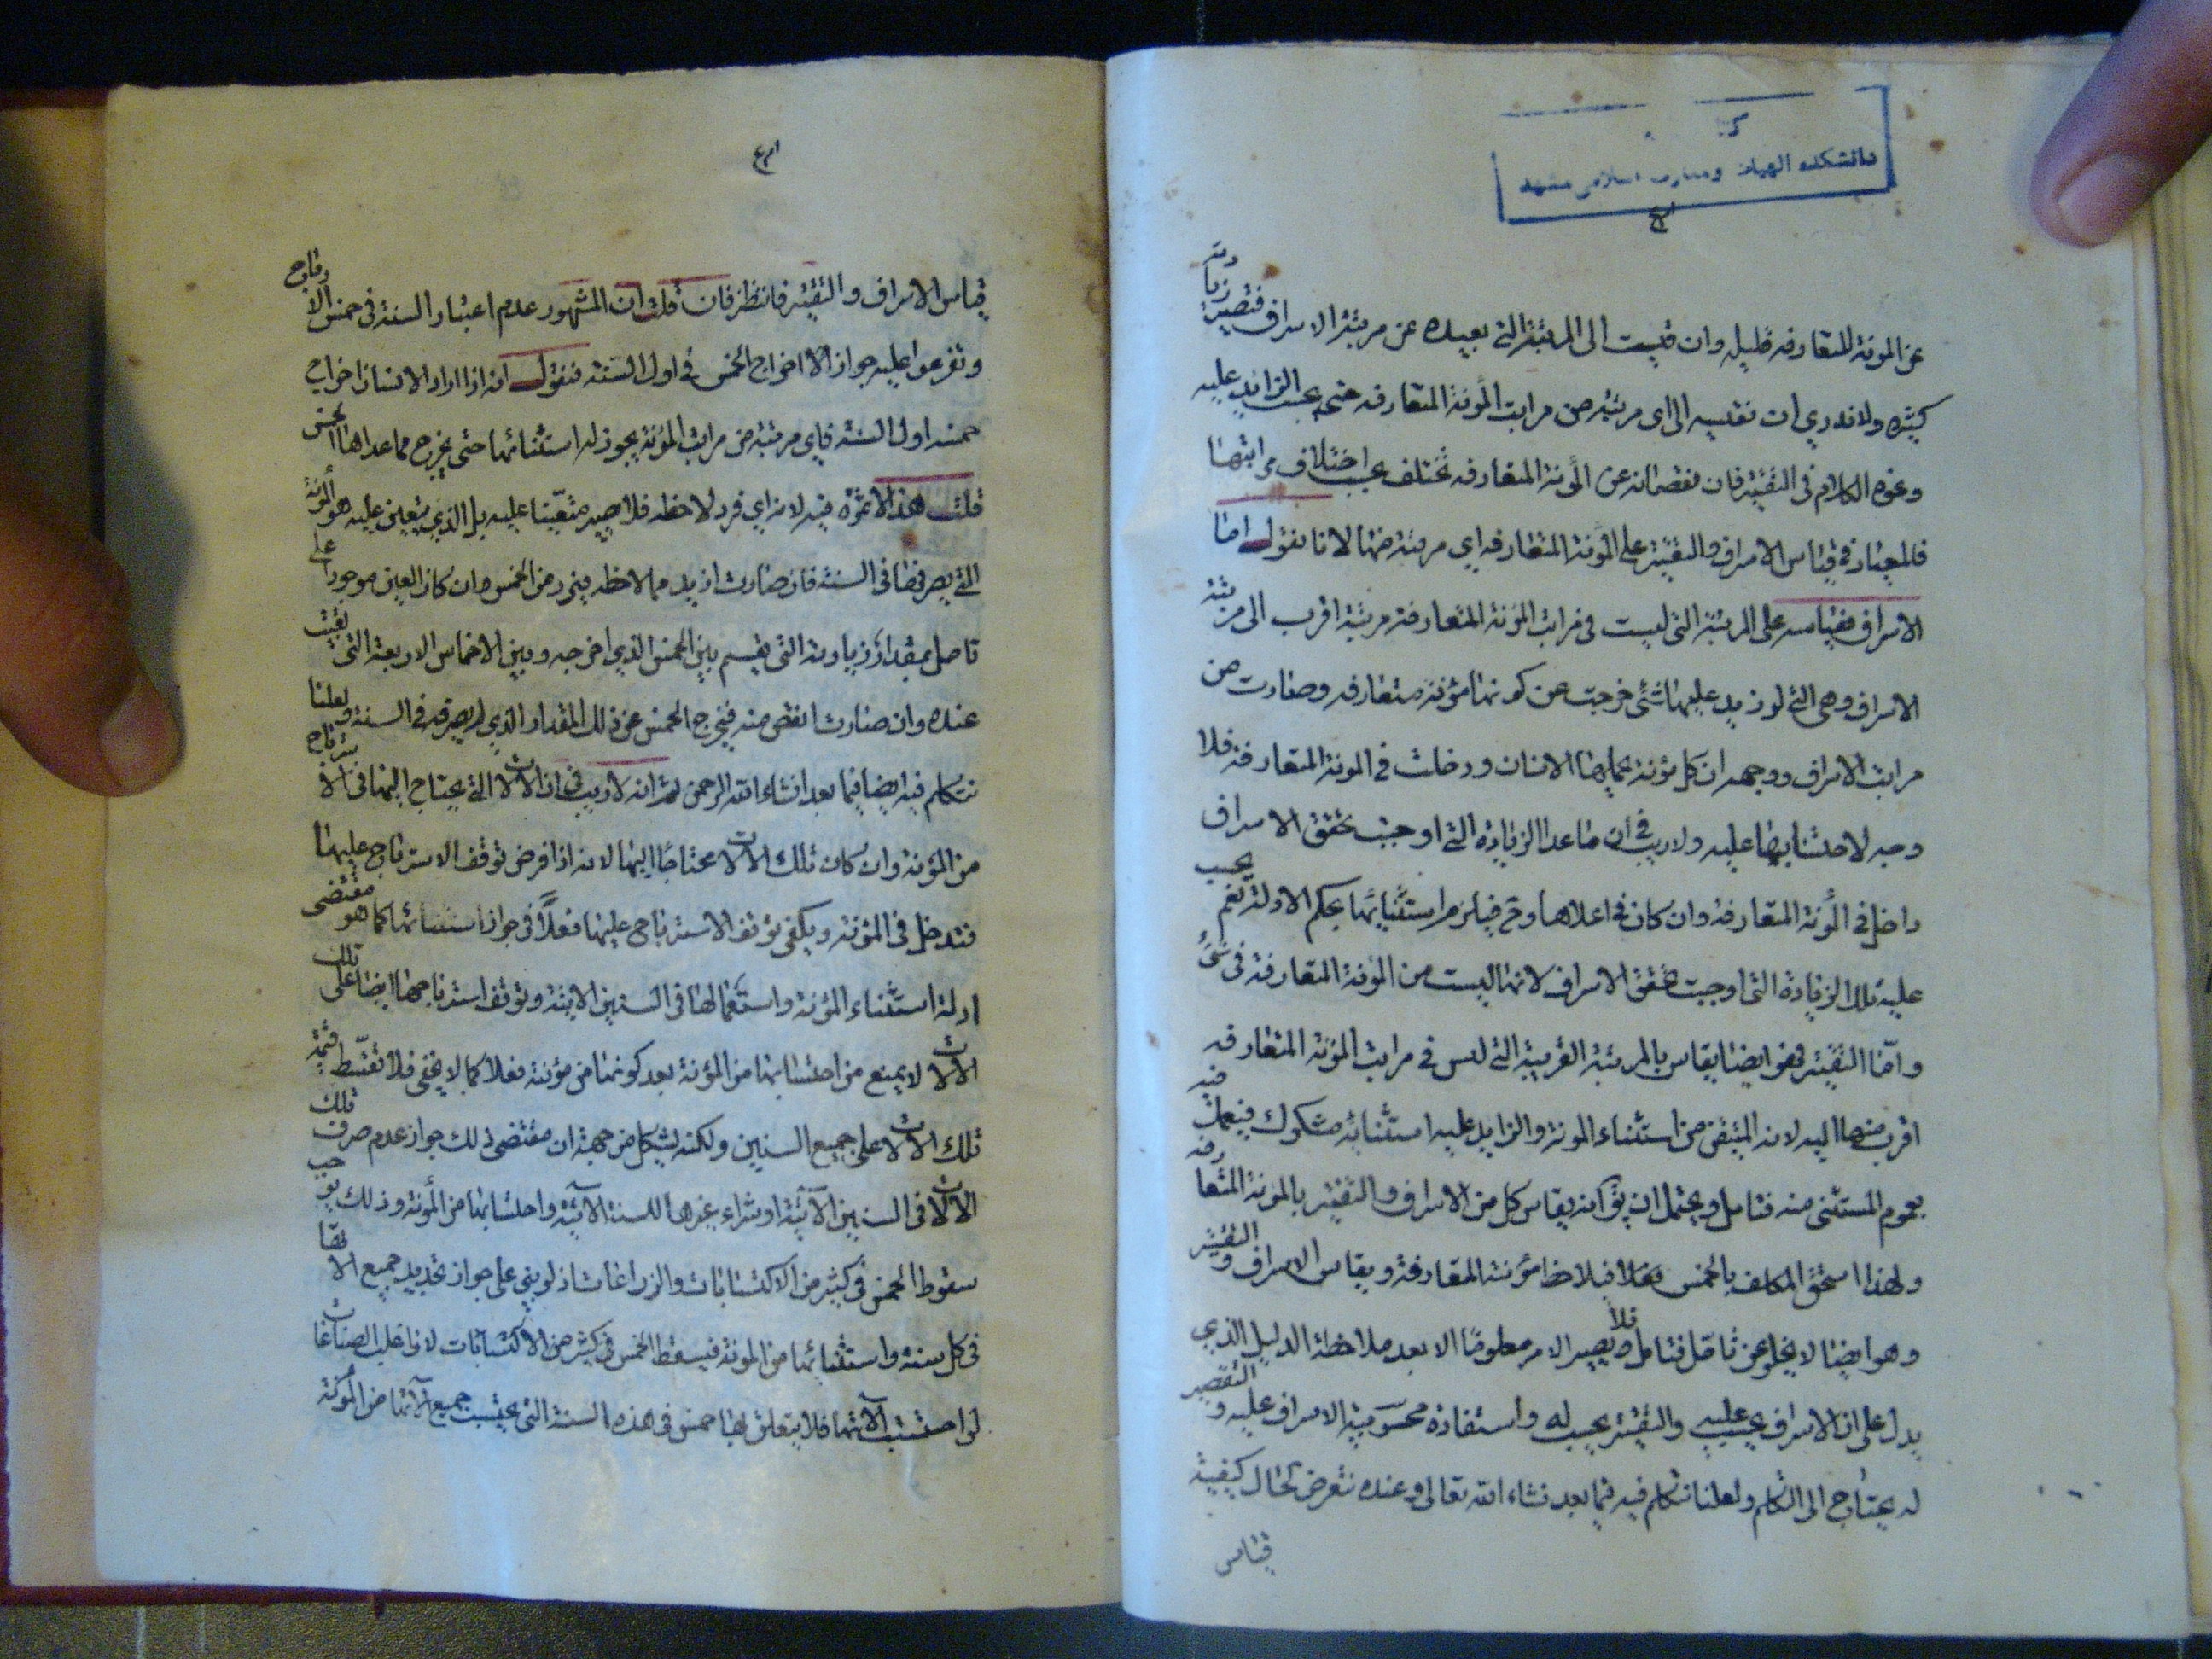 دانشكده الهيات ومعارف اسلامى مشهد
عن المونة المتعارفه قليله وان قيست الى المرتبة التى بعيده عن مرتبة الاسراف فتصير زيادته
كثيره ولا ندري ان نقيسه الى اى مرتبه من مراتب المؤنة المتعارفه حتى يحسب الزايد عليه
ونحوه الكلام فى التقتير فان نقصانه عن المؤنة المتعارفه تختلف بحسب اختلاف مراتبها
فالمعيار فى قياس الاسراف والتقتير على المؤنة المتعارفه اي مرتبة منها لانا نقول اما
الاسراف فقياسه على المرتبة التى ليست فى مراتب المؤنة المتعارفة مرتبة اقرب الى مرتبة
الاسراف وهى التى لو زيد عليها شئ خرجت عن كونها مؤنة متعارفه وصارت من
مراتب الاسراف ووجهه ان كل مؤنة عملها الانسان ودخلت فى المونة المتعارفة فلا
وجه لاحتسابها عليه ولا ريب فى ان ماعدا الزيادة التى اوجبت تحقق الاسراف
داخل فى المؤنة المتعارفة وان كان فى اعلاها وح فيلزم استثنائها بحكم الادلة نعم يحسب
عليه تلك الزيادة التى اوجبت تحقق الاسراف لانها ليست من المؤنة المتعارفة فى شئ
وامّا التقتير فهو ايضا يقاس بالمرتبة القريبة التى ليس فى مراتب المؤنة المتعارفه
اقرب منها اليه لانه المتيقن من استثناء المونة والزايد عليه استثنائه مشكوك فيعمل فيه
بعموم المستثنى منه فتامل ويحتمل ان يق انه يقاس كل من الاسراف والتقتير بالمونة المتعارفه
ولهذا استحق المكلف بالخمس فعلا فيلاحظ مؤنته المتعارفة ويقاس الاسراف والتقتير
وهو ايضا لا يخلو عن تامّل فتامل فلا يصير الامر معلومًا الا بعد ملاحظة الدليل الذي
يدل على ان الاسراف يحسب عليه والتقتير يحسب له واستفادة محسوبية الاسراف عليه والتقصير
له يحتاج الى التكلم ولعلنا نتكلم فيه فيما بعد نشاء الله تعالى وعنده نتعرض لحال كيفية
قياس
قياس الاسراف والتقتير فانتظر فان قلت ان المشهور عدم اعتبار السنة فى خمس الارباح
وتفرعوا عليه جواز الا اخراج الخمس فى اول السّنة فنقول انه اذا اراد الانسان اخراج
خمسه اول السنة فباى مرتبة من مراتب المؤنة يجوز له استثنائها حتى يخرج مما عداها الخمس
قلت هذا لا ثمرة فيه لانه اي فرد لاحظه فلا يصير متعّينا عليه بل الذي يتعين عليه هو المؤنة
التى يصرفها فى السنة فان صارت ازيد مما لاحظه فيرد من الخمس وان كان العين موجودا على
تاصل بمقدار زيادته التى يقسم بين الخمس الذي اخرجه وبين الاخماس الاربعة التى بقيت
عنده وان صارت انقص منه فيخرج الخمس عن ذلك المقدار الذي لم يصرفه فى السنة ولعلنا
نتكلم فيه ايضا فيما بعد انشاء الله الرحمن ثم انه لا ريب فى ان الالات التى يحتاج اليها فى الاسترباح
من المؤنة وان كان تلك الالات محتاجًا اليها لانه اذا فرض توقف الاسترباح عليها
فتدخل فى المؤنة ويكفى توقف الاسترباح عليها فعلًا فى جواز استثنائها كما هو مقتضى
ادلة استثناء المؤنة واستعمالها فى السنين الاتية وتوقف استرباحها ايضا على تلك
الالات لا يمنع من احتسابها من المؤنة بعد كونها من مؤنته فعلا كما لا يخفى فلا تقسّط قيمة
تلك الالات على جميع السنين ولكنه يشكل من جهة ان مقتضى ذلك جواز عدم صرف تلك
الالات فى السنين الآتية او شراء غيرها للسنة الآتية واحتسابها من المؤنة وذلك يوجب
سقوط الخمس فى كثير من الاكتسابات والزراعات اذ لو بنى على جواز تجديد جميع الا
فى كل سنة واستثنائها من المونة فيسقط الخمس فى كثير من الاكتسابات لان اغلب الصناعات
لو احتسبت آلاتها فلا يتعلق بها خمس فى هذه السنة التى يحتسب جميع آلاتها من المؤنة